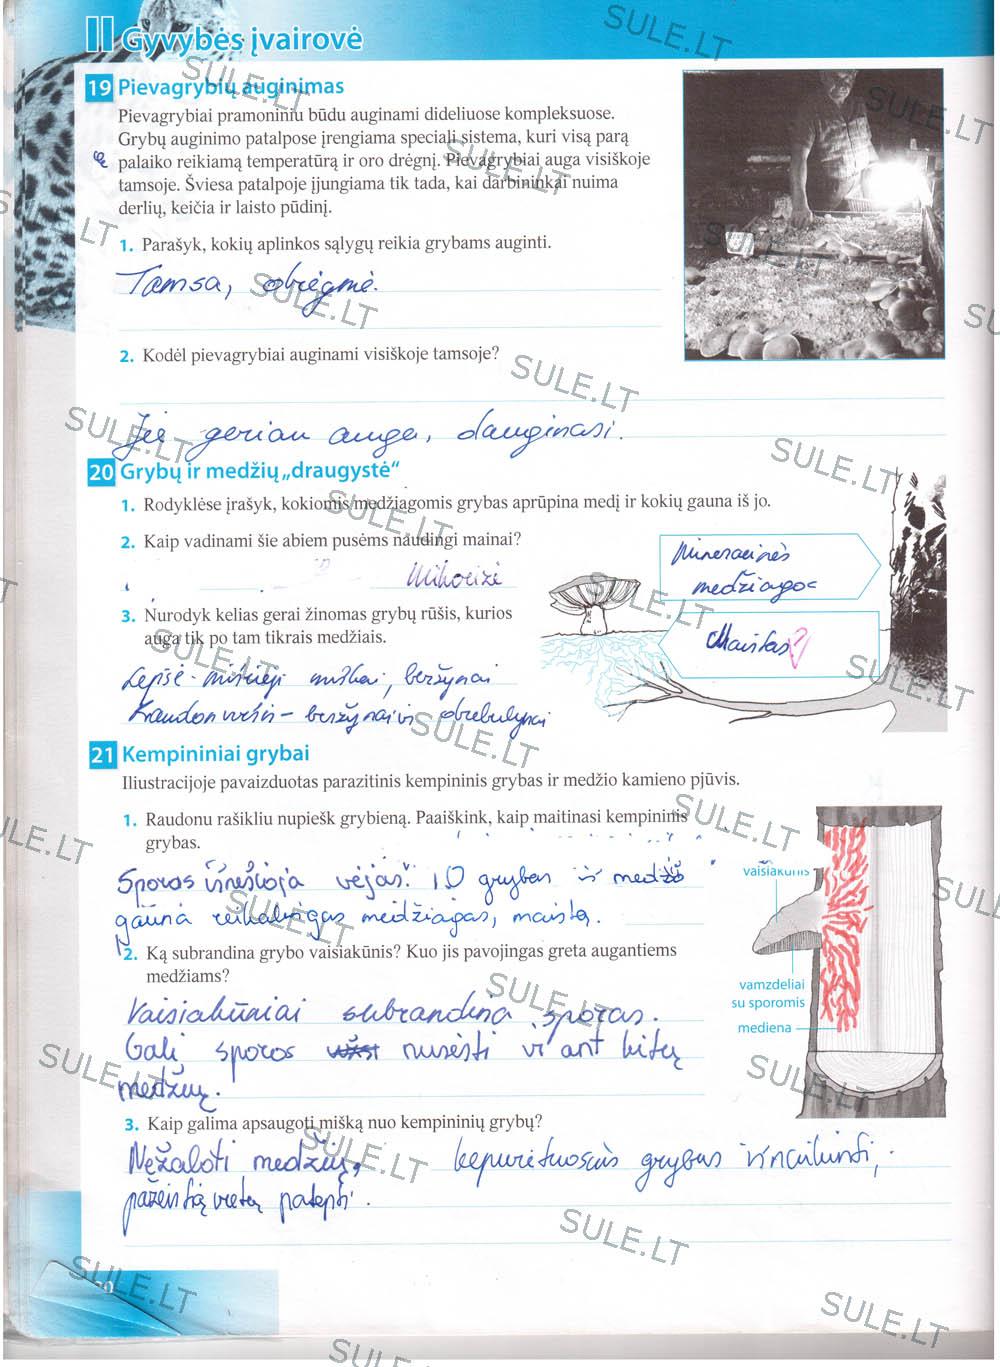 II Gyvybės įvairovė
19 Pievagrybių auginimas
Pievagrybiai pramoniniu būdu auginami dideliuose kompleksuose.
Grybų auginimo patalpose įrengiama speciali sistema, kuri visą parą
palaiko reikiamą temperatūrą ir oro drėgnį. Pievagrybiai auga visiškoje
tamsoje. Šviesa patalpoje įjungiama tik tada, kai darbininkai nuima
derlių, keičia ir laisto pūdinį.
1. Parašyk, kokių aplinkos sąlygų reikia grybams auginti.
Tamsa, drėgmė.
2. Kodėl pievagrybiai auginami visiškoje tamsoje?
Jie geriau auga, dauginasi.
20 Grybų ir medžių „draugystė“
1. Rodyklėse įrašyk, kokiomis medžiagomis grybas aprūpina medį ir kokių gauna iš jo.
2. Kaip vadinami šie abiem pusėms naudingi mainai?
Mikorizė
Mineralinės
medžiagos
Maistas?
3. Nurodyk kelias gerai žinomas grybų rūšis, kurios
auga tik po tam tikrais medžiais.
Lepšė - mišrieji miškai, beržynai
Raudonviršis - beržynai ir drebulynai
21 Kempininiai grybai
Iliustracijoje pavaizduotas parazitinis kempininis grybas ir medžio kamieno pjūvis.
1. Raudonu rašikliu nupiešk grybieną. Paaiškink, kaip maitinasi kempininis
grybas.
Sporas išnešioja vėjas. O grybas iš medžio
gauna reikalingas medžiagas, maistą.
vaisiakūnis
vamzdeliai
su sporomis
mediena
2. Ką subrandina grybo vaisiakūnis? Kuo jis pavojingas greta augantiems
medžiams?
Vaisiakūniai subrandina sporas.
Gali sporos nusėsti ir ant kitų
medžių.
3. Kaip galima apsaugoti mišką nuo kempininių grybų?
Nežaloti medžių, kepurėtuosius grybus
pažeistą vietą patepti.
SULE.LT